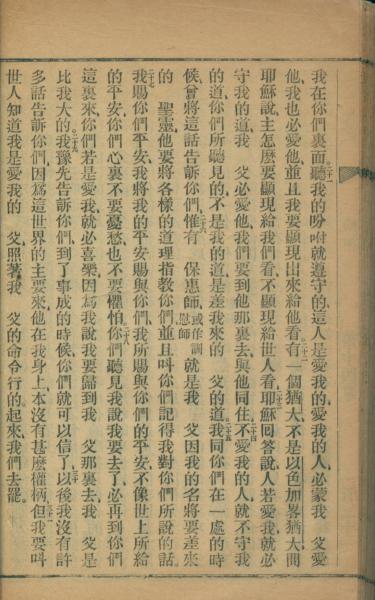 我在你們裏面二十一聽我的吩咐就遵守的這人是愛我的愛我的人必蒙我 父愛
他我也必愛他並且我要顯現出來給他看二十二有一個猶大不是以色加畧猶大問
耶穌說主怎麼要顯現給我們看不顯現給世人看二十三耶穌回答說人若愛我就必
守我的道我 父必愛他我們要到他那裏去與他同住二十四不愛我的人就不守我
的道你們所聽見的不是我的道是差我來的 父的道二十五我同你們在一處的時
候會將這話告訴你們二十六惟有 保惠師或作訓慰師就是我 父因我的名將要差來
的 聖靈他要將各樣的道理指教你們並且叫你們記得我對你們所說的話
二十七我賜你們平安我將我的平安賜與你們我所賜與你們的平安不像世上所給
的平安你們心裏不要憂愁也不要懼怕二十八你們聽見我說我要去了必再到你們
這裏來你們若是愛我就必喜樂因爲我說我要歸到我 父那裏去我 父是
比我大的二十九我豫先告訴你們到了事成的時候你們就可以信了三十以後我沒有許
多話告訴你們因爲這世界的主要來他在我身上本沒有甚麽權柄三十一但我要叫
世人知道我是愛我的 父照著我 父的命令行的起來我們去罷